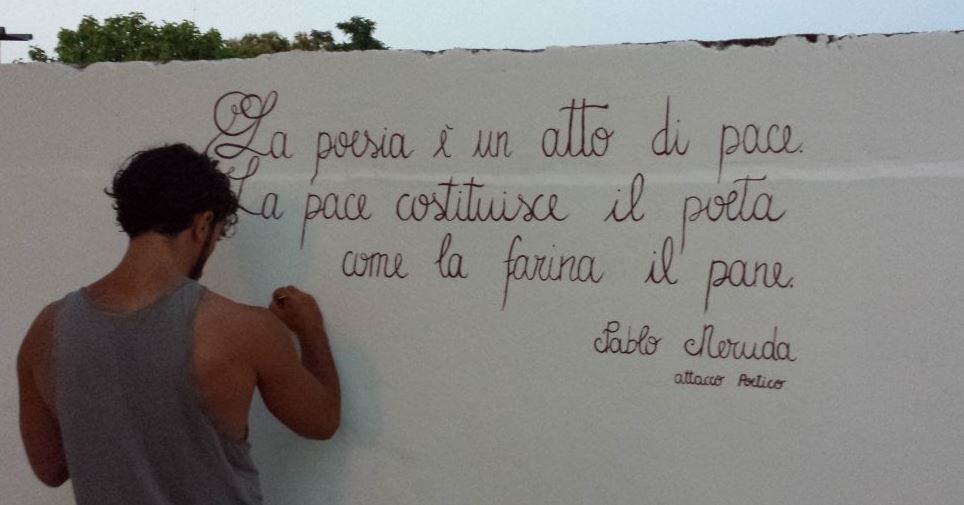 La poesia è un atto di pace.
La pace costituisce il poeta
come la farina il pane.
Pablo Neruda
attacco Poetico